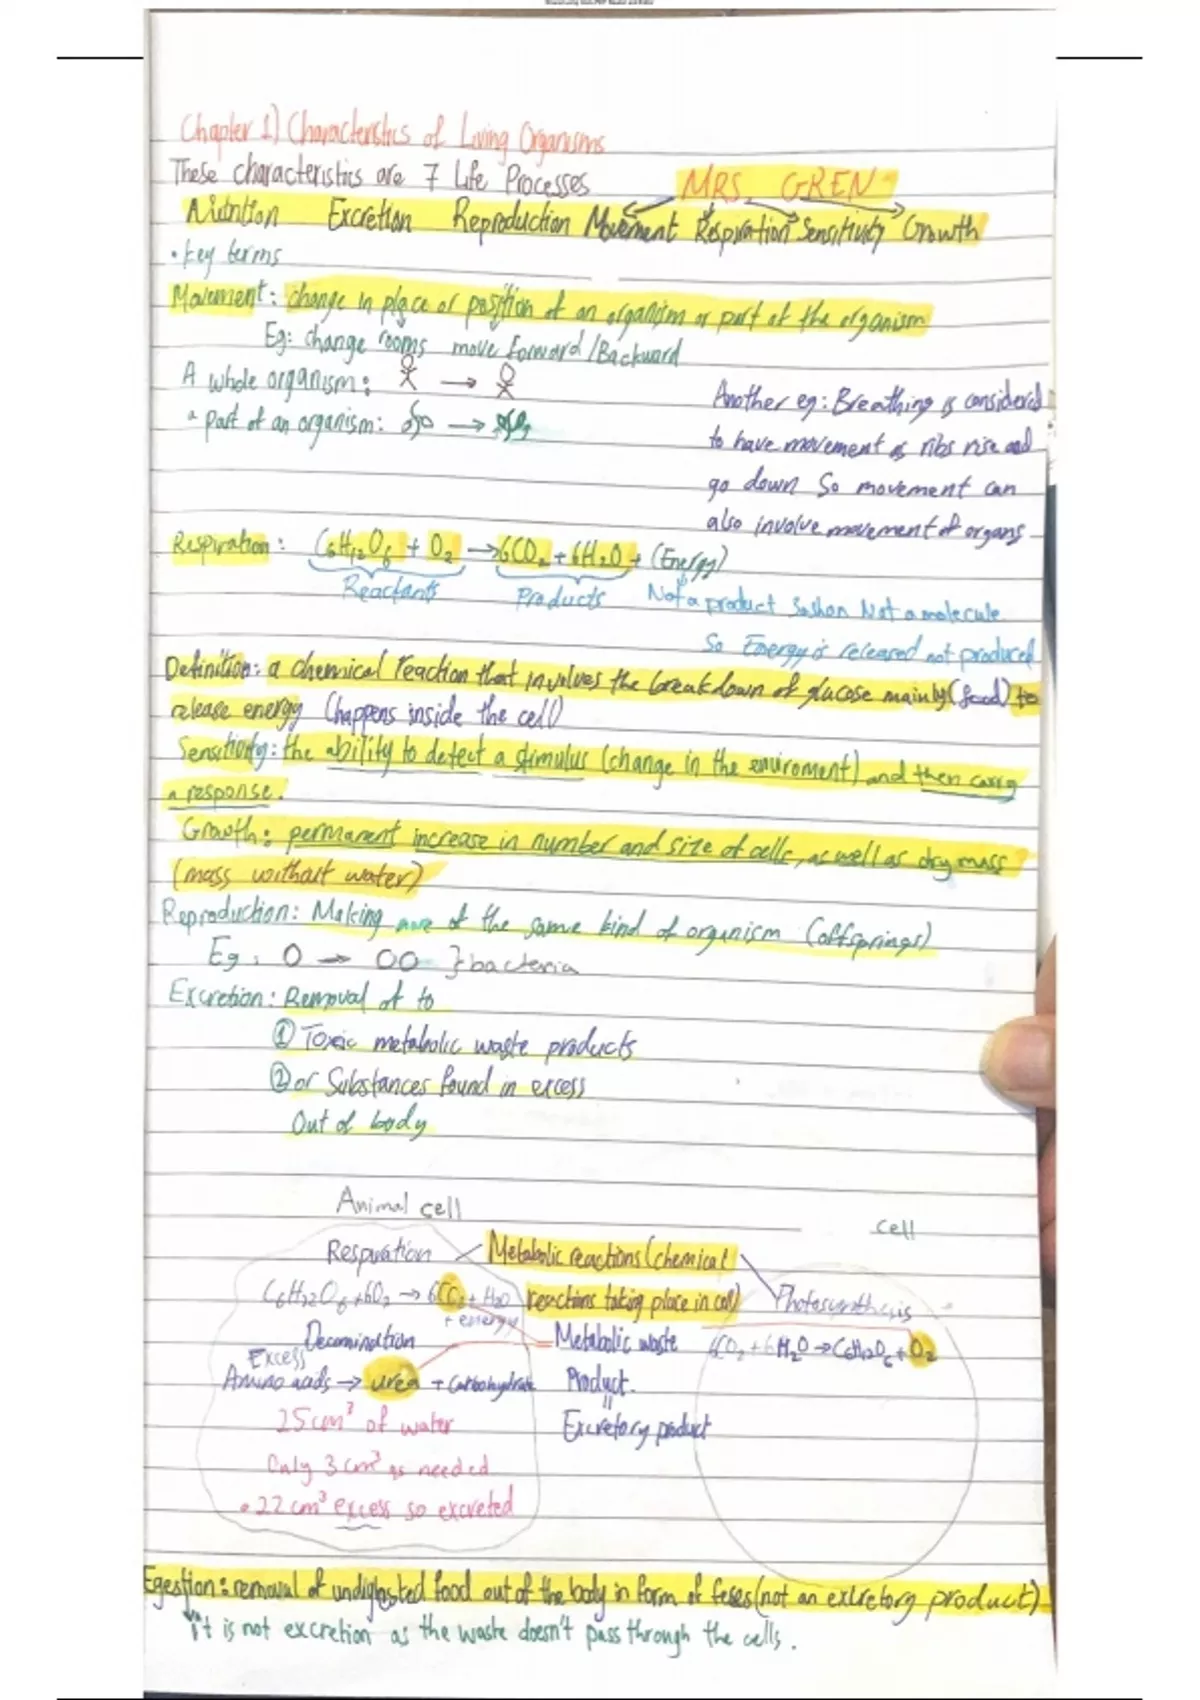 Chapter 1) Characteristics of Living Organisms
These characteristics are 7 Life Processes MRS. GREN
Nutrition Excretion Reproduction Movement Respiration Sensitivity Growth
• key terms
Movement: change in place or position of an organism or part of the organism
Eg: change rooms move forward/Backward
A whole organism:
a part of an organism:
Another eg: Breathing is considered
to have movement as ribs rise and
go down So movement can
also involve movement of organs
Respiration: C6H12O6 + O2 → 6CO2 + 6H2O + (Energy)
Reactants Products Not a product Not a molecule
So Energy is released not produced
Definition: a chemical reaction that involves the breakdown of glucose mainly (food) to
release energy (happens inside the cell)
Sensitivity: the ability to detect a stimulus (change in the enviroment) and then carry
a response.
Growth: permanent increase in number and size of cells, as well as dry mass
(mass without water)
Reproduction: Making more of the same kind of organism (offsprings)
Eg: O → OO } bacteria
Excretion: Removal of to
① Toxic metabolic waste products
② or Substances found in excess
Out of body
Animal cell
cell
Respiration Metabolic reactions (chemical
reactions taking place in cell)
C6H12O6 + 6O2 → 6CO2 + H2O
+ energy
Photosynthesis
Deamination
Metabolic waste
6CO2 + 6H2O → C6H12O6 + O2
Excess
Amino acids → urea + Carbohydrate
Product.
=
Excretory product
25cm³ of water
Only 3cm³ is needed
• 22cm³ excess so excreted
Egestion: removal of undigested food out of the body in form of feses (not an extretory product)
it is not excretion as the waste doesn't pass through the cells.